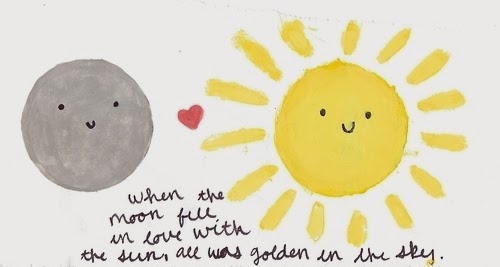 when the
moon fell
in love with
the sun, all was golden in the sky.